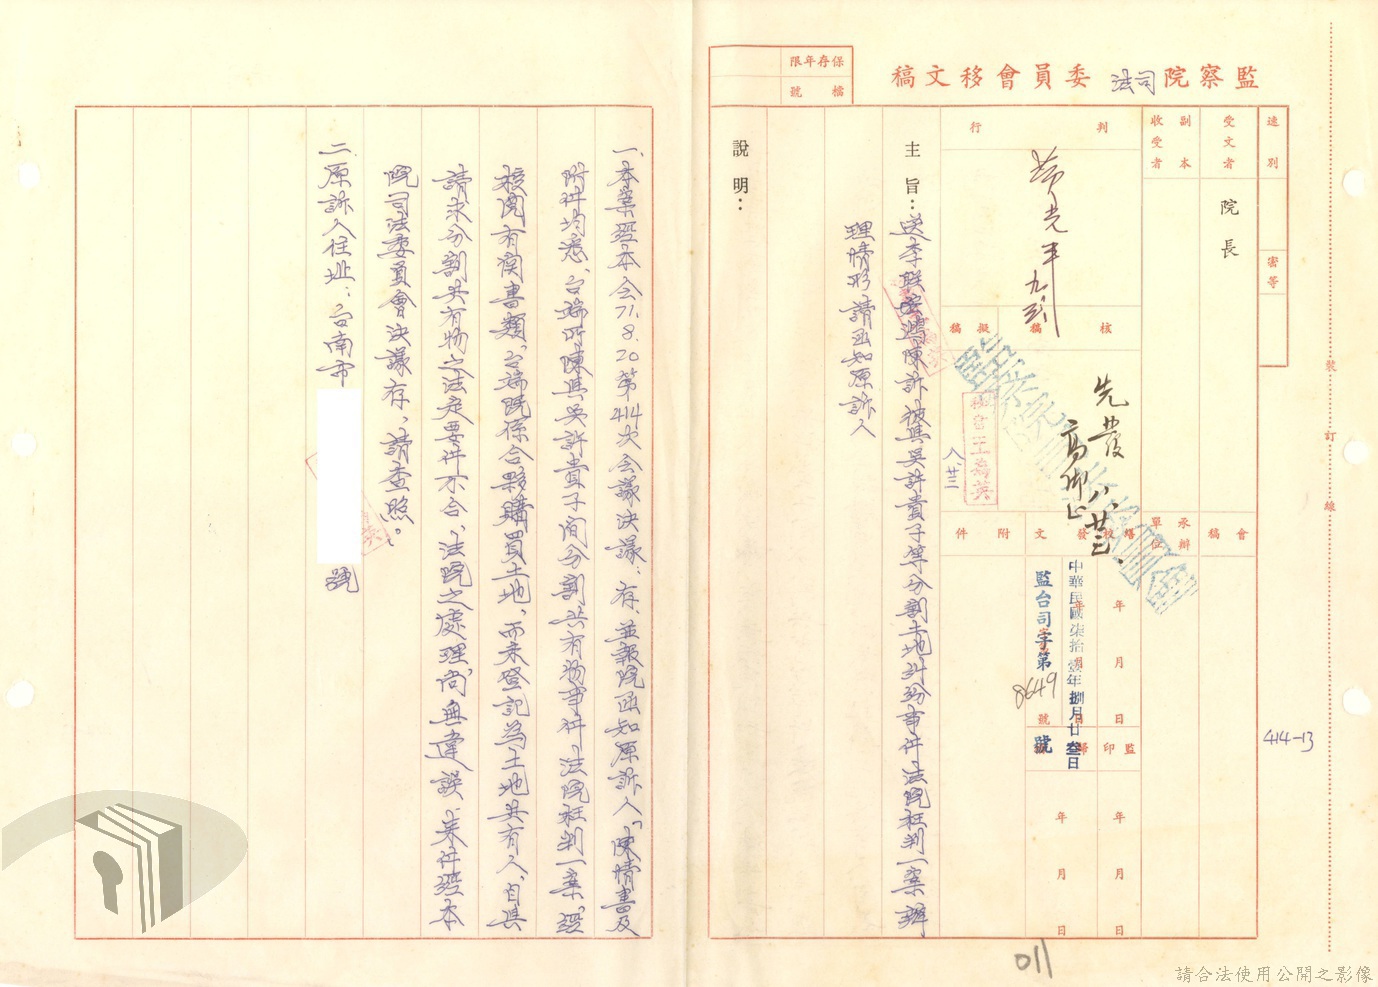 監察院司法委員會移文稿
保存年限
檔號
速別
密等
受文者
院長
副本
收受者
判行
核稿
擬稿
會稿
承辦單位
附件
先發
八、廿三
校對王為英
監察院司法委員會
中華民國柒拾壹年捌月廿叁日
監台司字第8649號
年月日
監印
年月日
主旨：送李联安鴻陳訴被與吳許貴子等分割土地糾紛事件法院枉判一案辦
理情形請函知原訴人
說明：
一、本案經本会71.8.20第414次会議決議：存、並報院函知原訴人「陳情書及
附件均悉、台端所陳與吳許貴子间分割共有物事件法院枉判一案、經
核院有関書類、台端既係合夥購買土地、而未登記為土地共有人、自與
請求分割共有物之法定要件不合、法院之處理、尚無違誤」、案件經本
院司法委員會決議存、請查照。
二、原訴人住址：台南市
號
裝訂線
414-13
011
請合法使用公開之影像